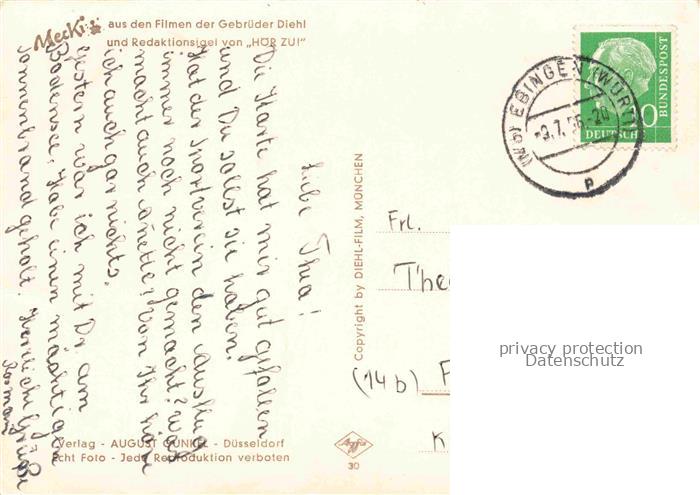 Mecki
aus den Filmen der Gebrüder Diehl
und Redaktionsigel von „HÖR ZU!"
Liebe Thea!
Die Karte hat mir gut gefallen
und Du sollst sie haben.
Hat der Sportverein den Ausflug
immer noch nicht gemacht? Was
macht auch Anette? Von Ihr höre
ich auch gar nichts.
Gestern war ich mit Dr. am
Bodensee. Habe einen mächtigen
Sonnenbrand geholt. Herzliche Grüße
Verlag - AUGUST GUNKEL - Düsseldorf
Echt Foto - Jede Reproduktion verboten
Copyright by DIEHL-FILM, MÜNCHEN
Agfa
30
EBINGEN (WÜRTT)
DEUTSCHE
BUNDESPOST
Frl.
(14b)
privacy protection
Datenschutz